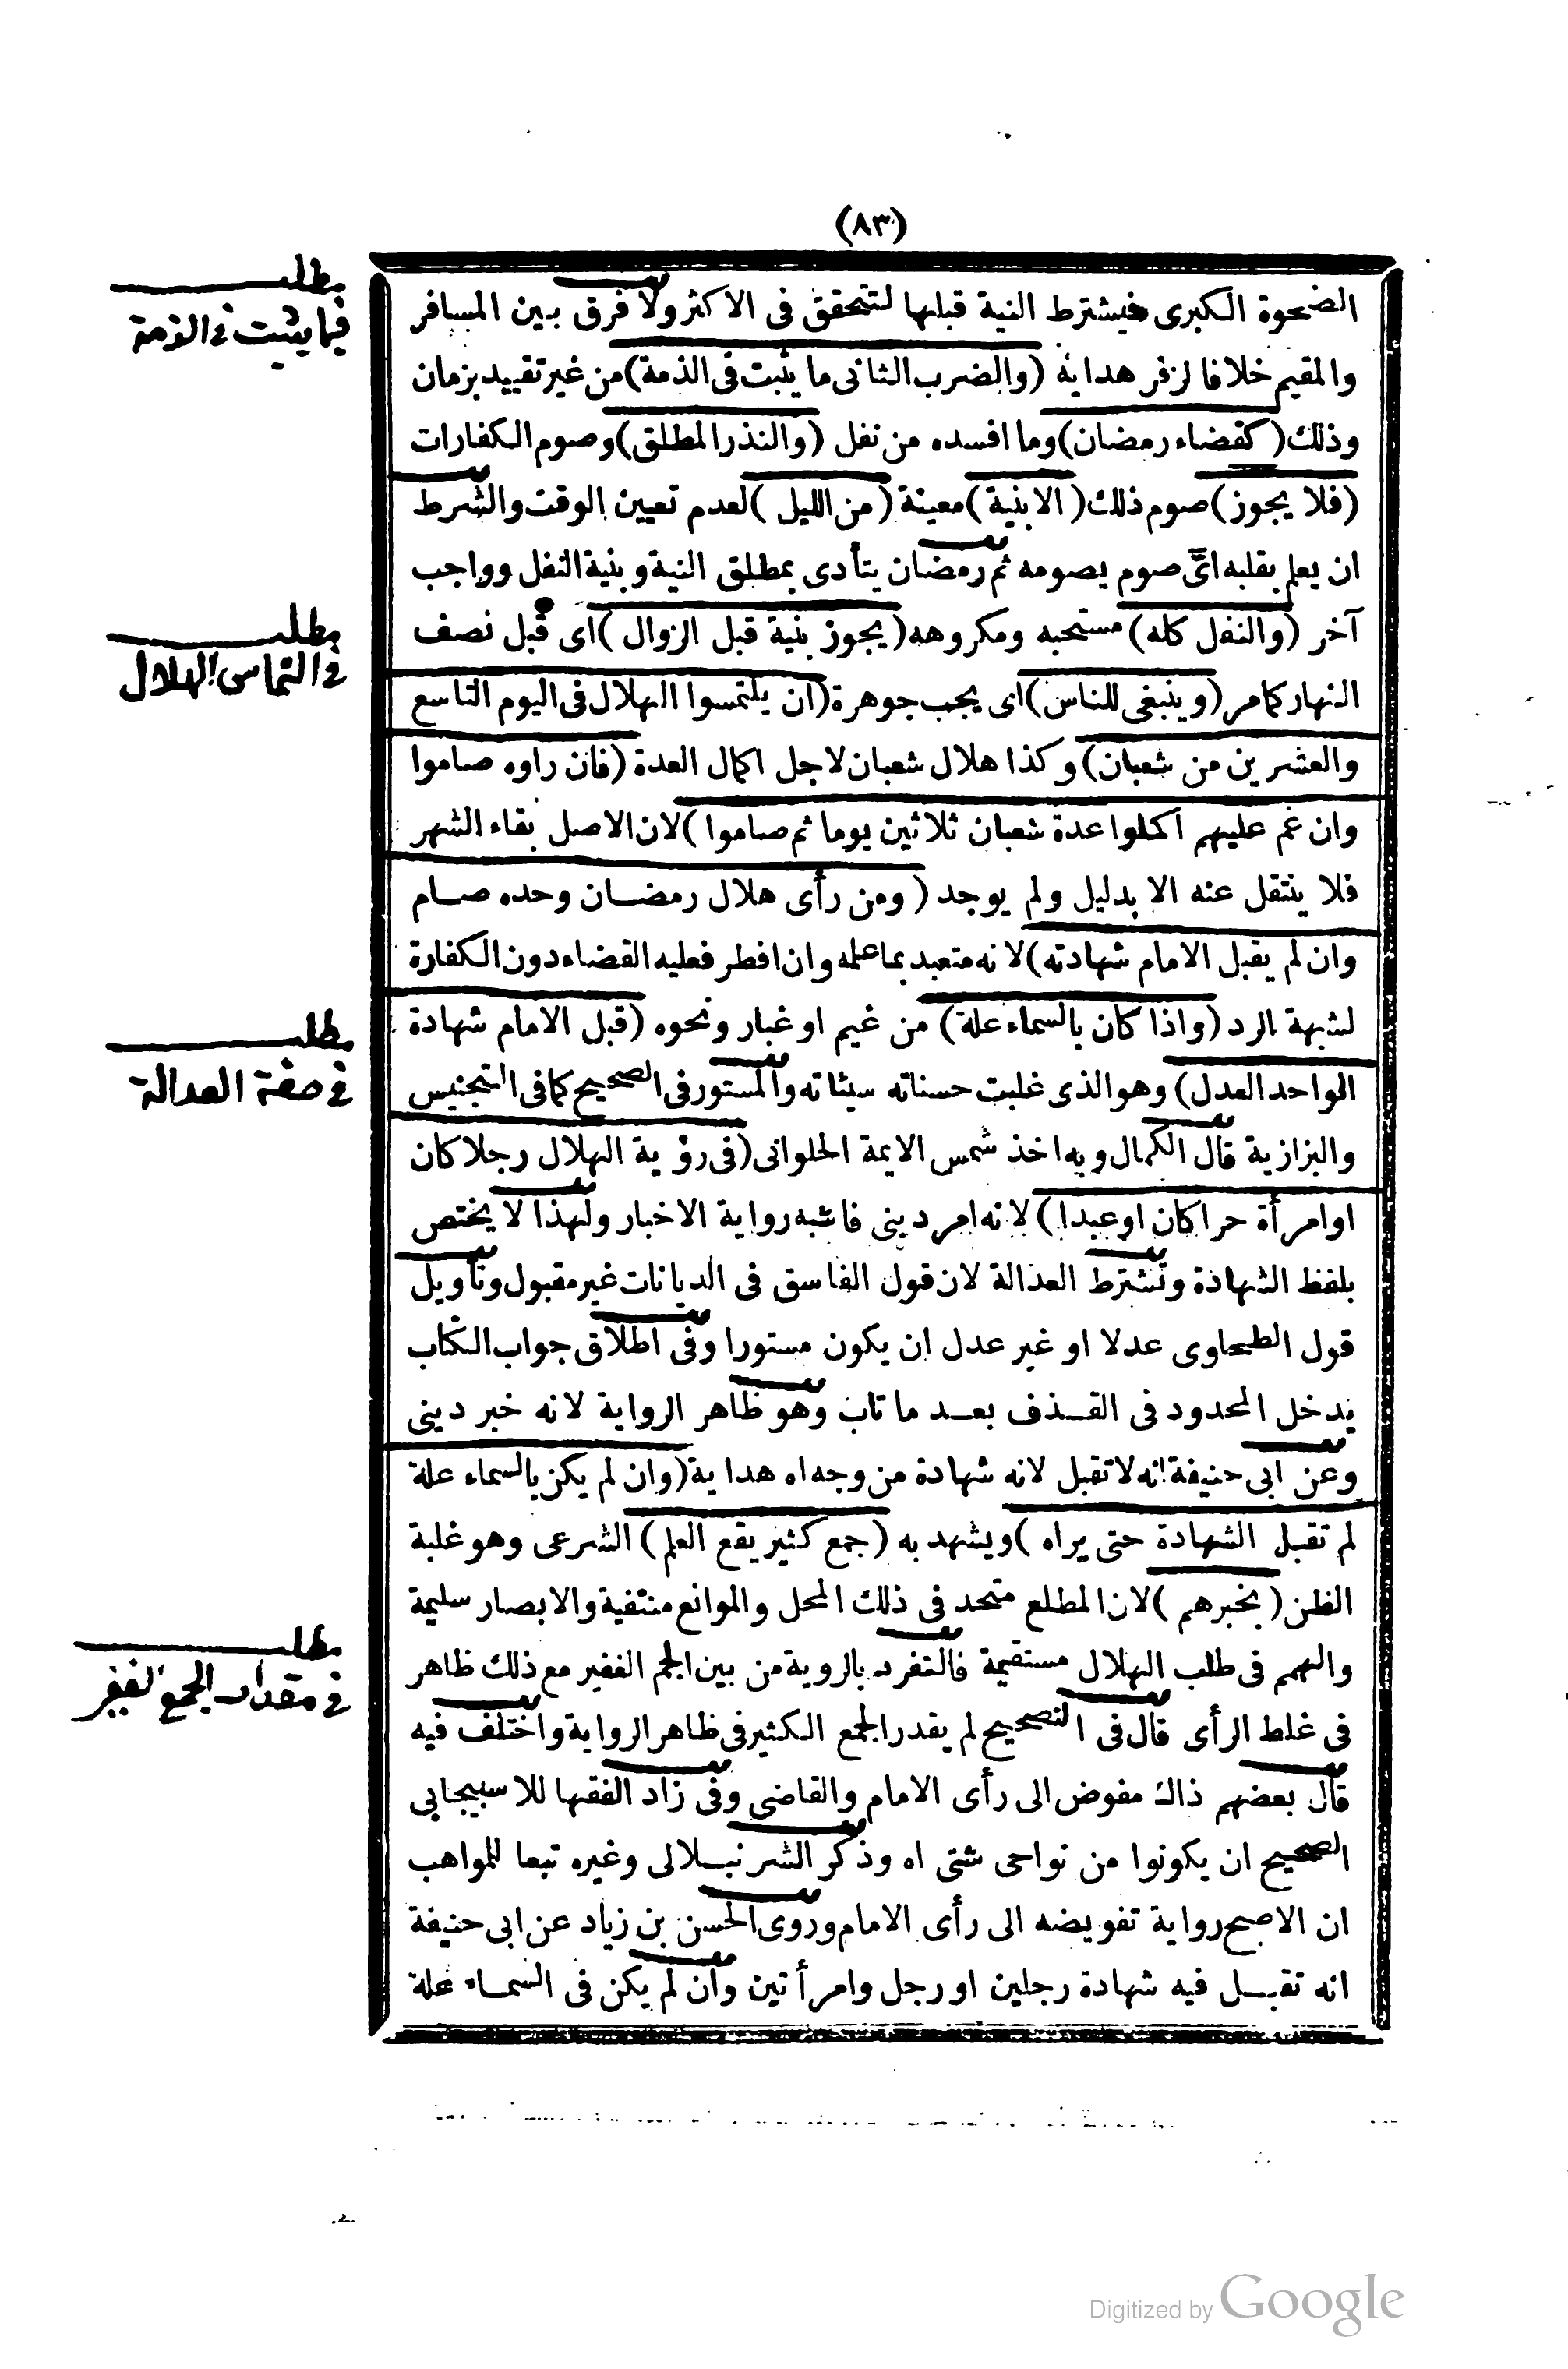 (٨٣)
الضحوة الكبرى فيشترط النية قبلها لتتحقق فى الاكثر ولا فرق بين المسافر
والمقيم خلافا لزفر هداية (والضرب الثانى ما يثبت فى الذمة) من غير تقييد بزمان
وذلك (كقضاء رمضان) وما افسده من نفل (والنذر المطلق) وصوم الكفارات
(فلا يجوز) صوم ذلك (الا بنية) معينة (من الليل) لعدم تعيين الوقت والشرط
ان يعلم بقلبه اىّ صوم يصومه ثم رمضان يتأدى بمطلق النية وبنية النفل وواجب
آخر (والنفل كله) مستحبه ومكروهه (يجوز بنية قبل الزوال) اى قبل نصف
النهار كما مر (وينبغى للناس) اى يجب جوهرة (ان يلتمسوا الهلال فى اليوم التاسع
والعشرين من شعبان) وكذا هلال شعبان لاجل اكمال العدة (فان راوه صاموا
وان غم عليهم اكملوا عدة شعبان ثلاثين يوما ثم صاموا) لان الاصل بقاء الشهر
فلا ينتقل عنه الا بدليل ولم يوجد (ومن رأى هلال رمضان وحده صام
وان لم يقبل الامام شهادته) لانه متعبد بما علمه وان افطر فعليه القضاء دون الكفارة
لشبهة الرد (واذا كان بالسماء علة) من غيم او غبار ونحوه (قبل الامام شهادة
الواحد العدل) وهو الذى غلبت حسناته سيئاته والمستور فى الصحيح كما فى التجنيس
والبزازية قال الكمال وبه اخذ شمس الايمة الحلوانى (فى رؤية الهلال رجلا كان
او امرأة حرا كان او عبدا) لانه امر دينى فاشبه رواية الاخبار ولهذا لا يختص
بلفظ الشهادة وتشترط العدالة لان قول الفاسق فى الديانات غير مقبول وتأويل
قول الطحاوى عدلا او غير عدل ان يكون مستورا وفى اطلاق جواب الكتاب
يدخل المحدود فى القذف بعد ما تاب وهو ظاهر الرواية لانه خبر دينى
وعن ابى حنيفة انه لا تقبل لانه شهادة من وجه اه هداية (وان لم يكن بالسماء علة
لم تقبل الشهادة حتى يراه) ويشهد به (جمع كثير يقع العلم) الشرعى وهو غلبة
الظن (بخبرهم) لان المطلع متحد فى ذلك المحل والموانع منتفية والابصار سليمة
والهمم فى طلب الهلال مستقيمة فالتفرد بالروية من بين الجم الغفير مع ذلك ظاهر
فى غلط الرأى قال فى التصحيح لم يقدر الجمع الكثير فى ظاهر الرواية واختلف فيه
قال بعضهم ذاك مفوض الى رأى الامام والقاضى وفى زاد الفقها للاسبيجابى
الصحيح ان يكونوا من نواحى شتى اه وذكر الشرنبلالى وغيره تبعا للمواهب
ان الاصح رواية تفويضه الى رأى الامام وروى الحسن بن زياد عن ابى حنيفة
انه تقبل فيه شهادة رجلين او رجل وامرأتين وان لم يكن فى السماء علة
مطلب
فيما يثبت فى الذمة
مطلب
فى التماس الهلال
مطلب
فى صفة العدالة
مطلب
فى مقدار الجمع الغفير
Digitized by Google